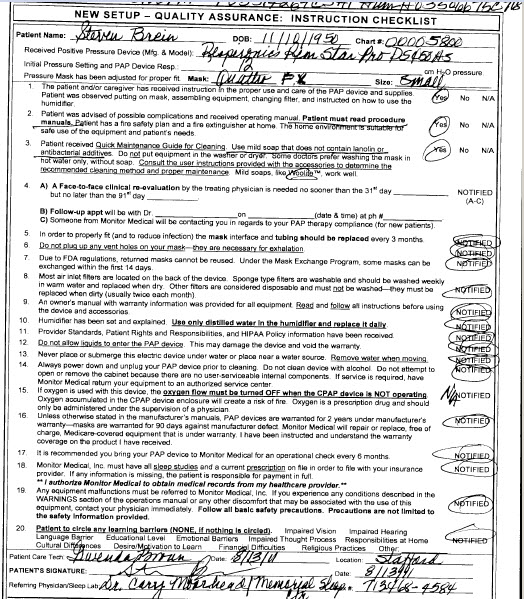 NEW SETUP – QUALITY ASSURANCE: INSTRUCTION CHECKLIST
Patient Name: Steven Brein DOB: 11/10/1950 Chart #: 00005800
Received Positive Pressure Device (Mfg. & Model): Respironics Rem Star Pro DS450HS
Initial Pressure Setting and PAP Device Resp.: 12 cm H₂O pressure
Pressure Mask has been adjusted for proper fit. Mask: Quattro FX Size: Small
1. The patient and/or caregiver has received instruction in the proper use and care of the PAP device and supplies. Yes No N/A
Patient was observed putting on mask, assembling equipment, changing filter, and instructed on how to use the
humidifier.
2. Patient was advised of possible complications and received operating manual. Patient must read procedure Yes No N/A
manuals. Patient has a fire safety plan and a fire extinguisher at home. The home environment is suitable for
safe use of the equipment and patient's needs.
3. Patient received Quick Maintenance Guide for Cleaning. Use mild soap that does not contain lanolin or Yes No N/A
antibacterial additives. Do not put equipment in the washer or dryer. Some doctors prefer washing the mask in
hot water only, without soap. Consult the user instructions provided with the accessories to determine the
recommended cleaning method and proper maintenance. Mild soaps, like Woolite, work well.
4. A) A Face-to-face clinical re-evaluation by the treating physician is needed no sooner than the 31st day NOTIFIED
but no later than the 91st day (A-C)
B) Follow-up appt will be with Dr. on (date & time) at ph #
C) Someone from Monitor Medical will be contacting you in regards to your PAP therapy compliance (for new patients).
5. In order to properly fit (and to reduce infection) the mask interface and tubing should be replaced every 3 months. NOTIFIED
6. Do not plug up any vent holes on your mask—they are necessary for exhalation. NOTIFIED
7. Due to FDA regulations, returned masks cannot be reused. Under the Mask Exchange Program, some masks can be NOTIFIED
exchanged within the first 14 days.
8. Most air inlet filters are located on the back of the device. Sponge type filters are washable and should be washed
weekly in warm water and replaced when dry. Other filters are considered disposable and must not be washed—they must be NOTIFIED
replaced when dirty (usually twice each month).
9. An owner's manual with warranty information was provided for all equipment. Read and follow all instructions before using NOTIFIED
the device and accessories.
10. Humidifier has been set and explained. Use only distilled water in the humidifier and replace it daily. NOTIFIED
11. Provider Standards, Patient Rights and Responsibilities, and HIPAA Policy information have been received. NOTIFIED
12. Do not allow liquids to enter the PAP device. This may damage the device and void the warranty. NOTIFIED
13. Never place or submerge this electric device under water or place near a water source. Remove water when moving NOTIFIED
14. Always power down and unplug your PAP device prior to cleaning. Do not clean device with alcohol. Do not attempt to NOTIFIED
open or remove the cabinet because there are no user-serviceable internal components. If service is required, have
Monitor Medical return your equipment to an authorized service center.
15. If oxygen is used with this device, the oxygen flow must be turned OFF when the CPAP device is NOT operating. N/A NOTIFIED
Oxygen accumulated in the CPAP device enclosure will create a risk of fire. Oxygen is a prescription drug and should
only be administered under the supervision of a physician.
16. Unless otherwise stated in the manufacturer's manuals, PAP devices are warranted for 2 years under manufacturer's
warranty—masks are warranted for 90 days against manufacturer defect. Monitor Medical will repair or replace, free of NOTIFIED
charge, Medicare-covered equipment that is under warranty. I have been instructed and understand the warranty
coverage on the product I have received.
17. It is recommended you bring your PAP device to Monitor Medical for an operational check every 6 months. NOTIFIED
18. Monitor Medical, Inc. must have all sleep studies and a current prescription on file in order to file with your insurance NOTIFIED
provider. If any information is missing, the patient is responsible for payment in full.
** I authorize Monitor Medical to obtain medical records from my healthcare provider.**
19. Any equipment malfunctions must be referred to Monitor Medical, Inc. If you experience any conditions described in the
WARNINGS section of the operations manual or any other discomfort that may be associated with the use of this NOTIFIED
equipment, contact your physician immediately. Follow all basic safety precautions. Precautions are not limited to
the safety information provided.
20. Patient to circle any learning barriers (NONE, if nothing is circled). Impaired Vision Impaired Hearing
Language Barrier Educational Level Emotional Barriers Impaired Thought Process Responsibilities at Home NOTIFIED
Cultural Differences Desire/Motivation to Learn Financial Difficulties Religious Practices Other:
Patient Care Tech: Gwenda Brown Date: 8/13/11 Location: Stafford
PATIENT'S SIGNATURE: Date:
Referring Physician/Sleep Lab: Dr. Cary Moorhead/Memorial Sleep #: 713468-4584